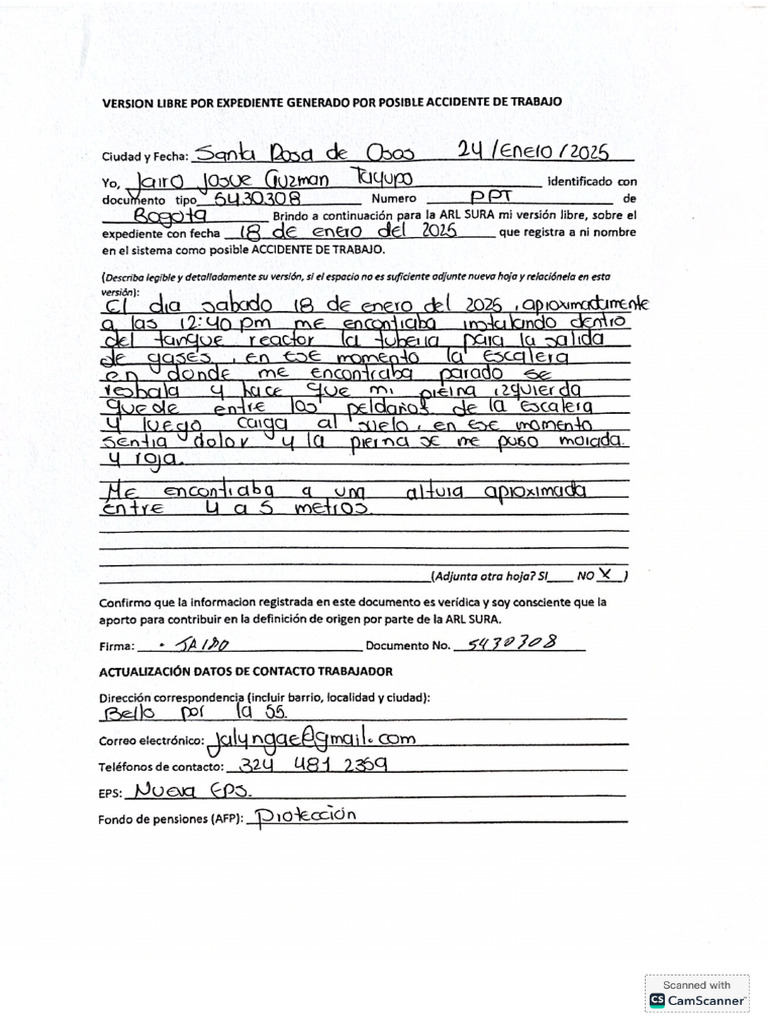 VERSION LIBRE POR EXPEDIENTE GENERADO POR POSIBLE ACCIDENTE DE TRABAJO
Ciudad y Fecha: Santa Rosa de Osos 24/Enero/2025
Yo, Jairo Josue Guzman Tuyupo identificado con
documento tipo 5430308 Numero PPT de
Bogota Brindo a continuación para la ARL SURA mi versión libre, sobre el
expediente con fecha 18 de enero del 2025 que registra a ni nombre
en el sistema como posible ACCIDENTE DE TRABAJO.
(Describa legible y detalladamente su versión, si el espacio no es suficiente adjunte nueva hoja y relaciónela en esta
versión):
El dia sabado 18 de enero del 2025, aproximadamente
a las 12:40 pm me encontraba instalando dentro
del tanque reactor la tuberia para la salida
de gases, en ese momento la escalera
en donde me encontraba parado se
resbala y hace que mi pierna izquierda
quede entre los peldaños de la escalera
y luego caiga al suelo, en ese momento
sentia dolor y la pierna se me puso morada
y roja.
Me encontraba a una altura aproximada
entre 4 a 5 metros.
(Adjunta otra hoja? SI___ NO X )
Confirmo que la informacion registrada en este documento es verídica y soy consciente que la
aporto para contribuir en la definición de origen por parte de la ARL SURA.
Firma: JAIRO Documento No. 5430308
ACTUALIZACIÓN DATOS DE CONTACTO TRABAJADOR
Dirección correspondencia (incluir barrio, localidad y ciudad):
Bello por la 55.
Correo electrónico: jalyngae@gmail.com
Teléfonos de contacto: 324 481 2359
EPS: Nueva Eps.
Fondo de pensiones (AFP): Protección
Scanned with
CS CamScanner